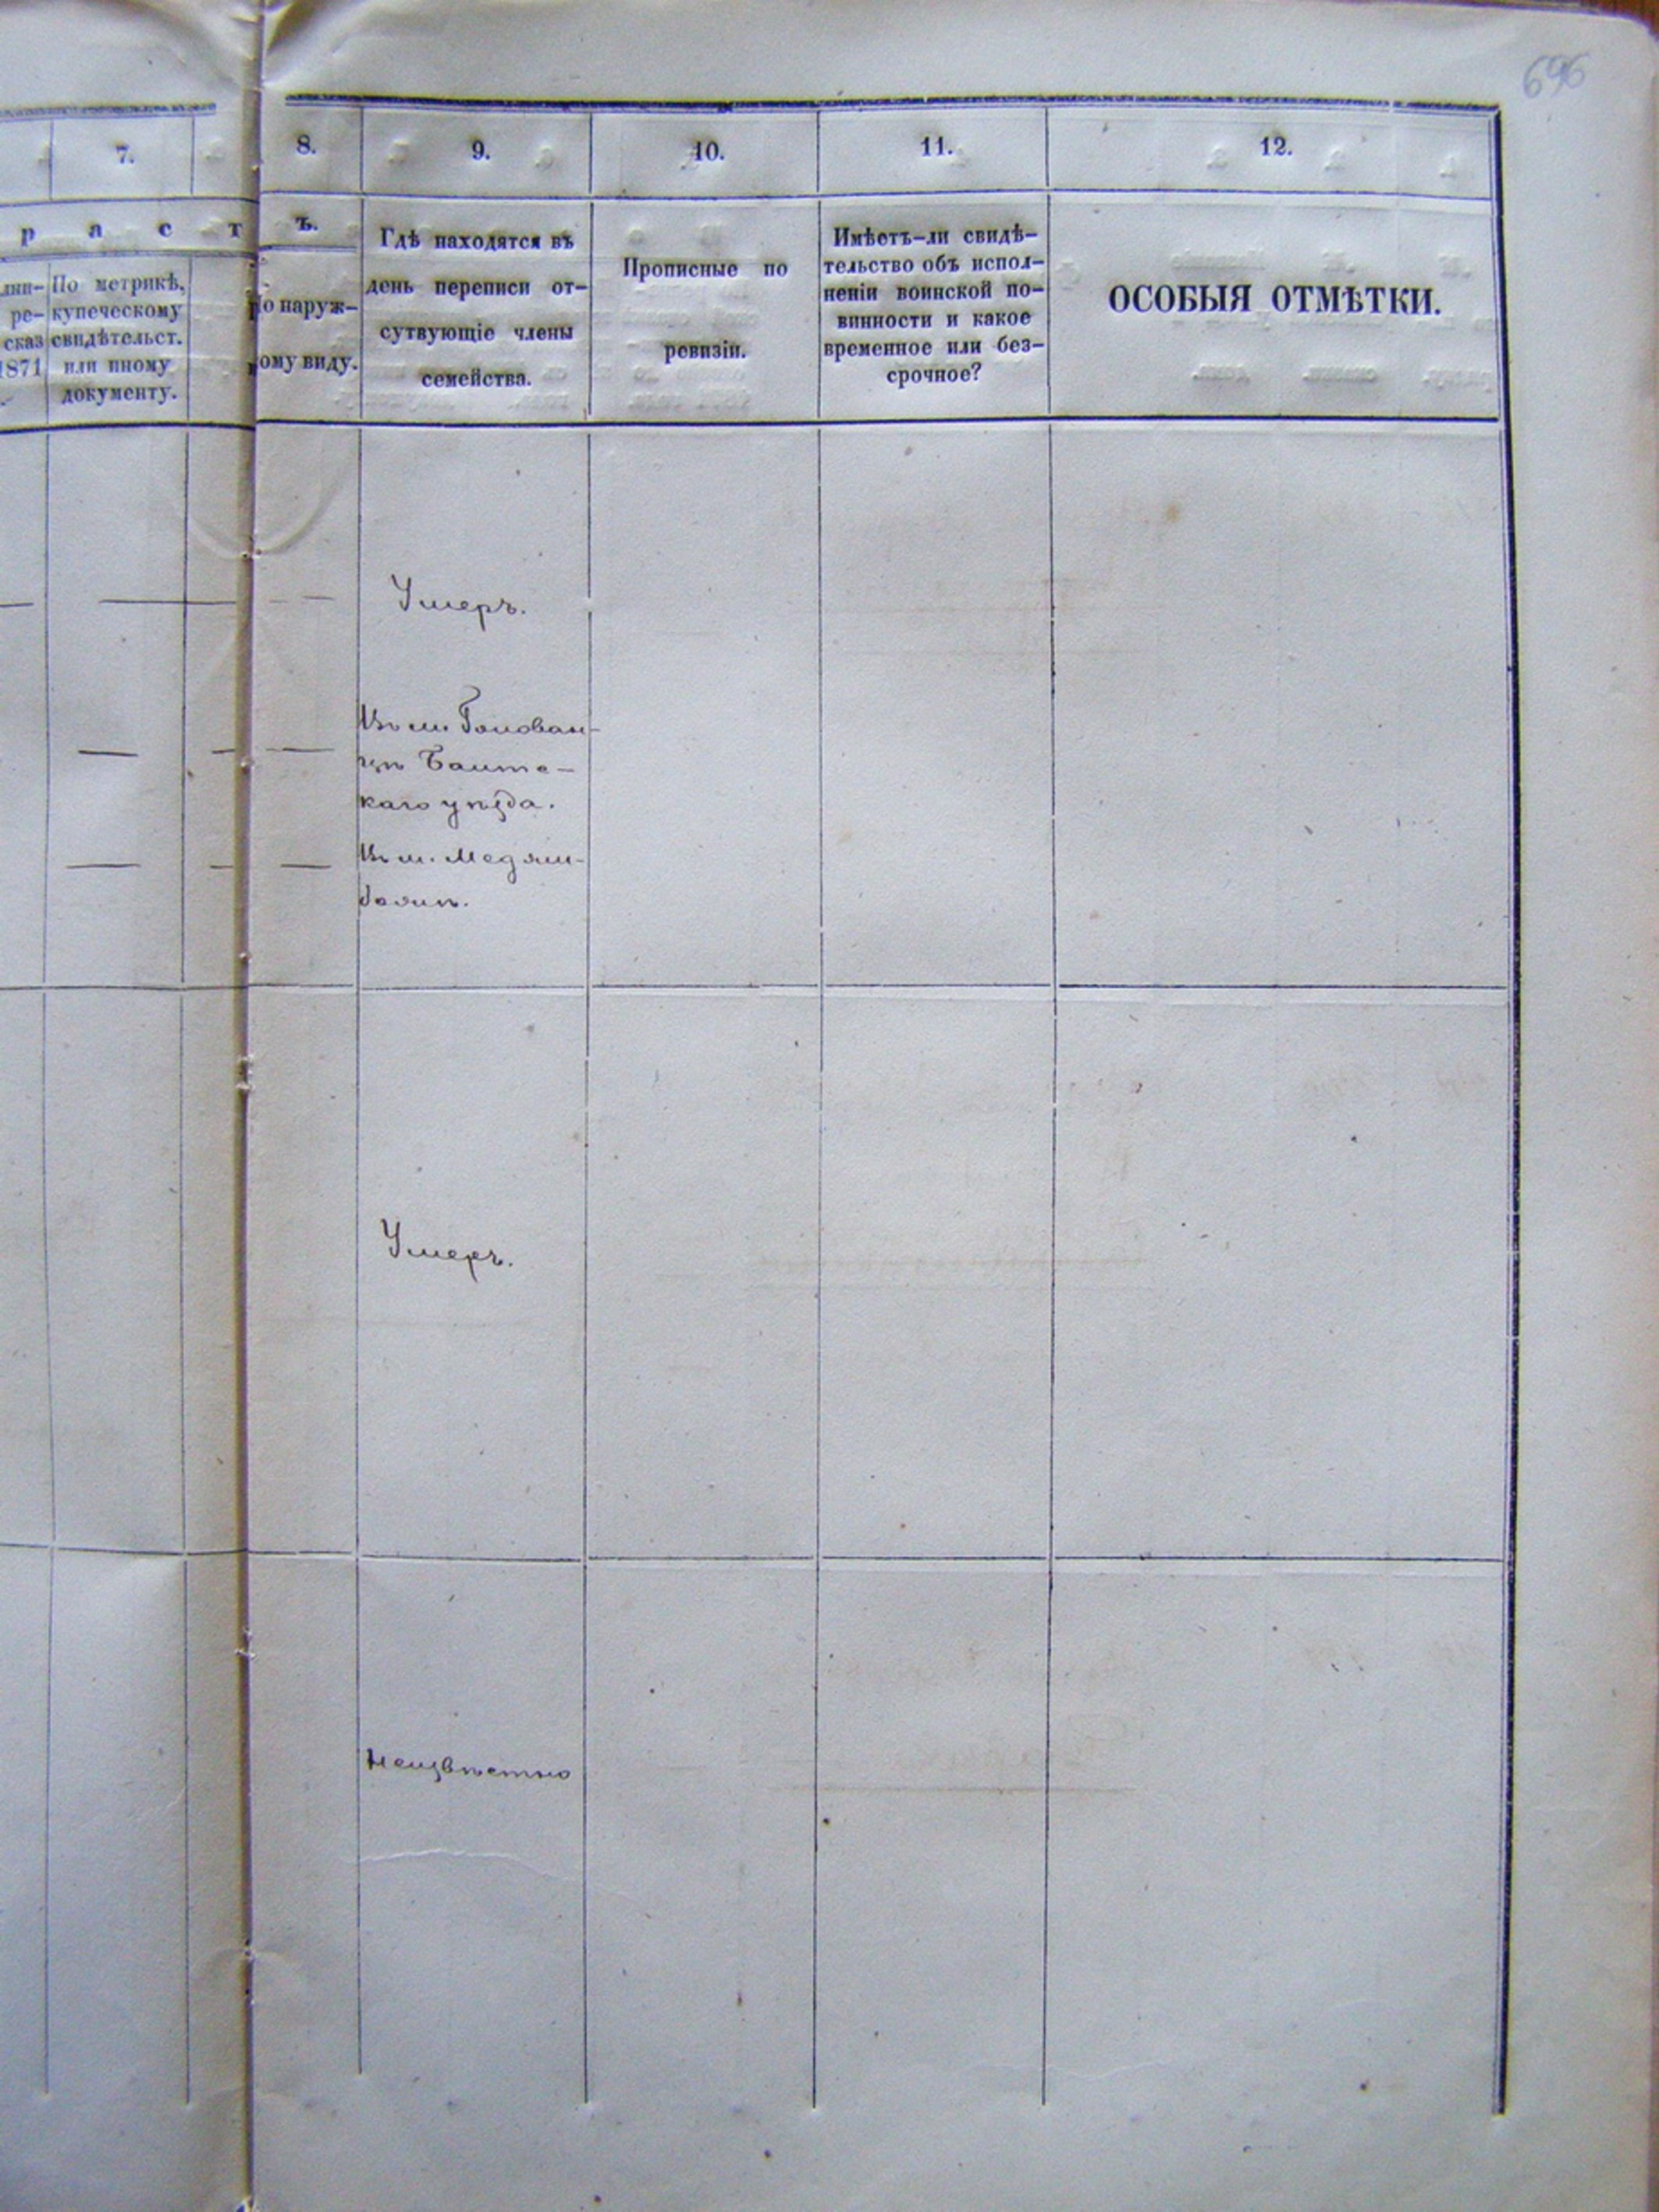 696
7.
8.
9.
10.
11.
12.
р а с т
ъ.
По метрикѣ,
купеческому
свидѣтельст.
или иному
документу.
ре-
сказ
1871
По наруж-
ному виду.
Гдѣ находятся въ
день переписи от-
сутвующіе члены
семейства.
Прописные по
ревизіи.
Имѣетъ-ли свидѣ-
тельство объ испол-
неніи воинской по-
винности и какое
временное или без-
срочное?
ОСОБЫЯ ОТМѢТКИ.
Умеръ.
Въ м. Голован-
Балтс-
каго уѣзда.
Въ м.
Умеръ.
Неизвѣстно